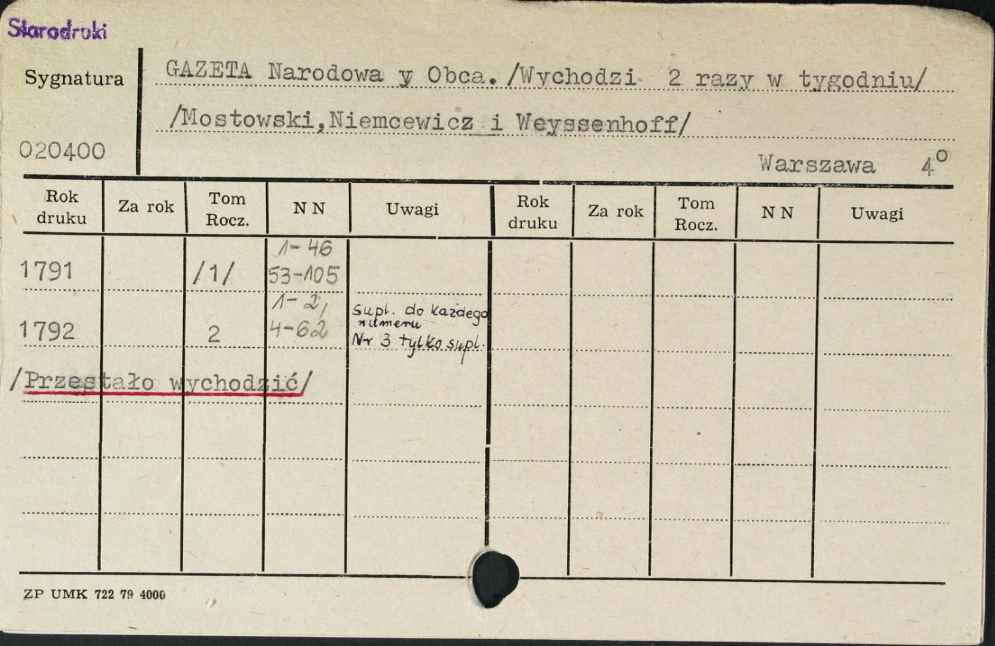 Starodruki
Sygnatura
GAZETA Narodowa y Obca. /Wychodzi 2 razy w tygodniu/
/Mostowski,Niemcewicz i Weyssenhoff/
020400
Warszawa 4º
Rok druku Za rok Tom Rocz. N N Uwagi Rok druku Za rok Tom Rocz. N N Uwagi
1-46
1791 /1/ 53-105
1-2,
Supl. do każdego
numeru
1792 2 4-62
Nr 3 tylko supl.
/Przestało wychodzić/
ZP UMK 722 79 4000